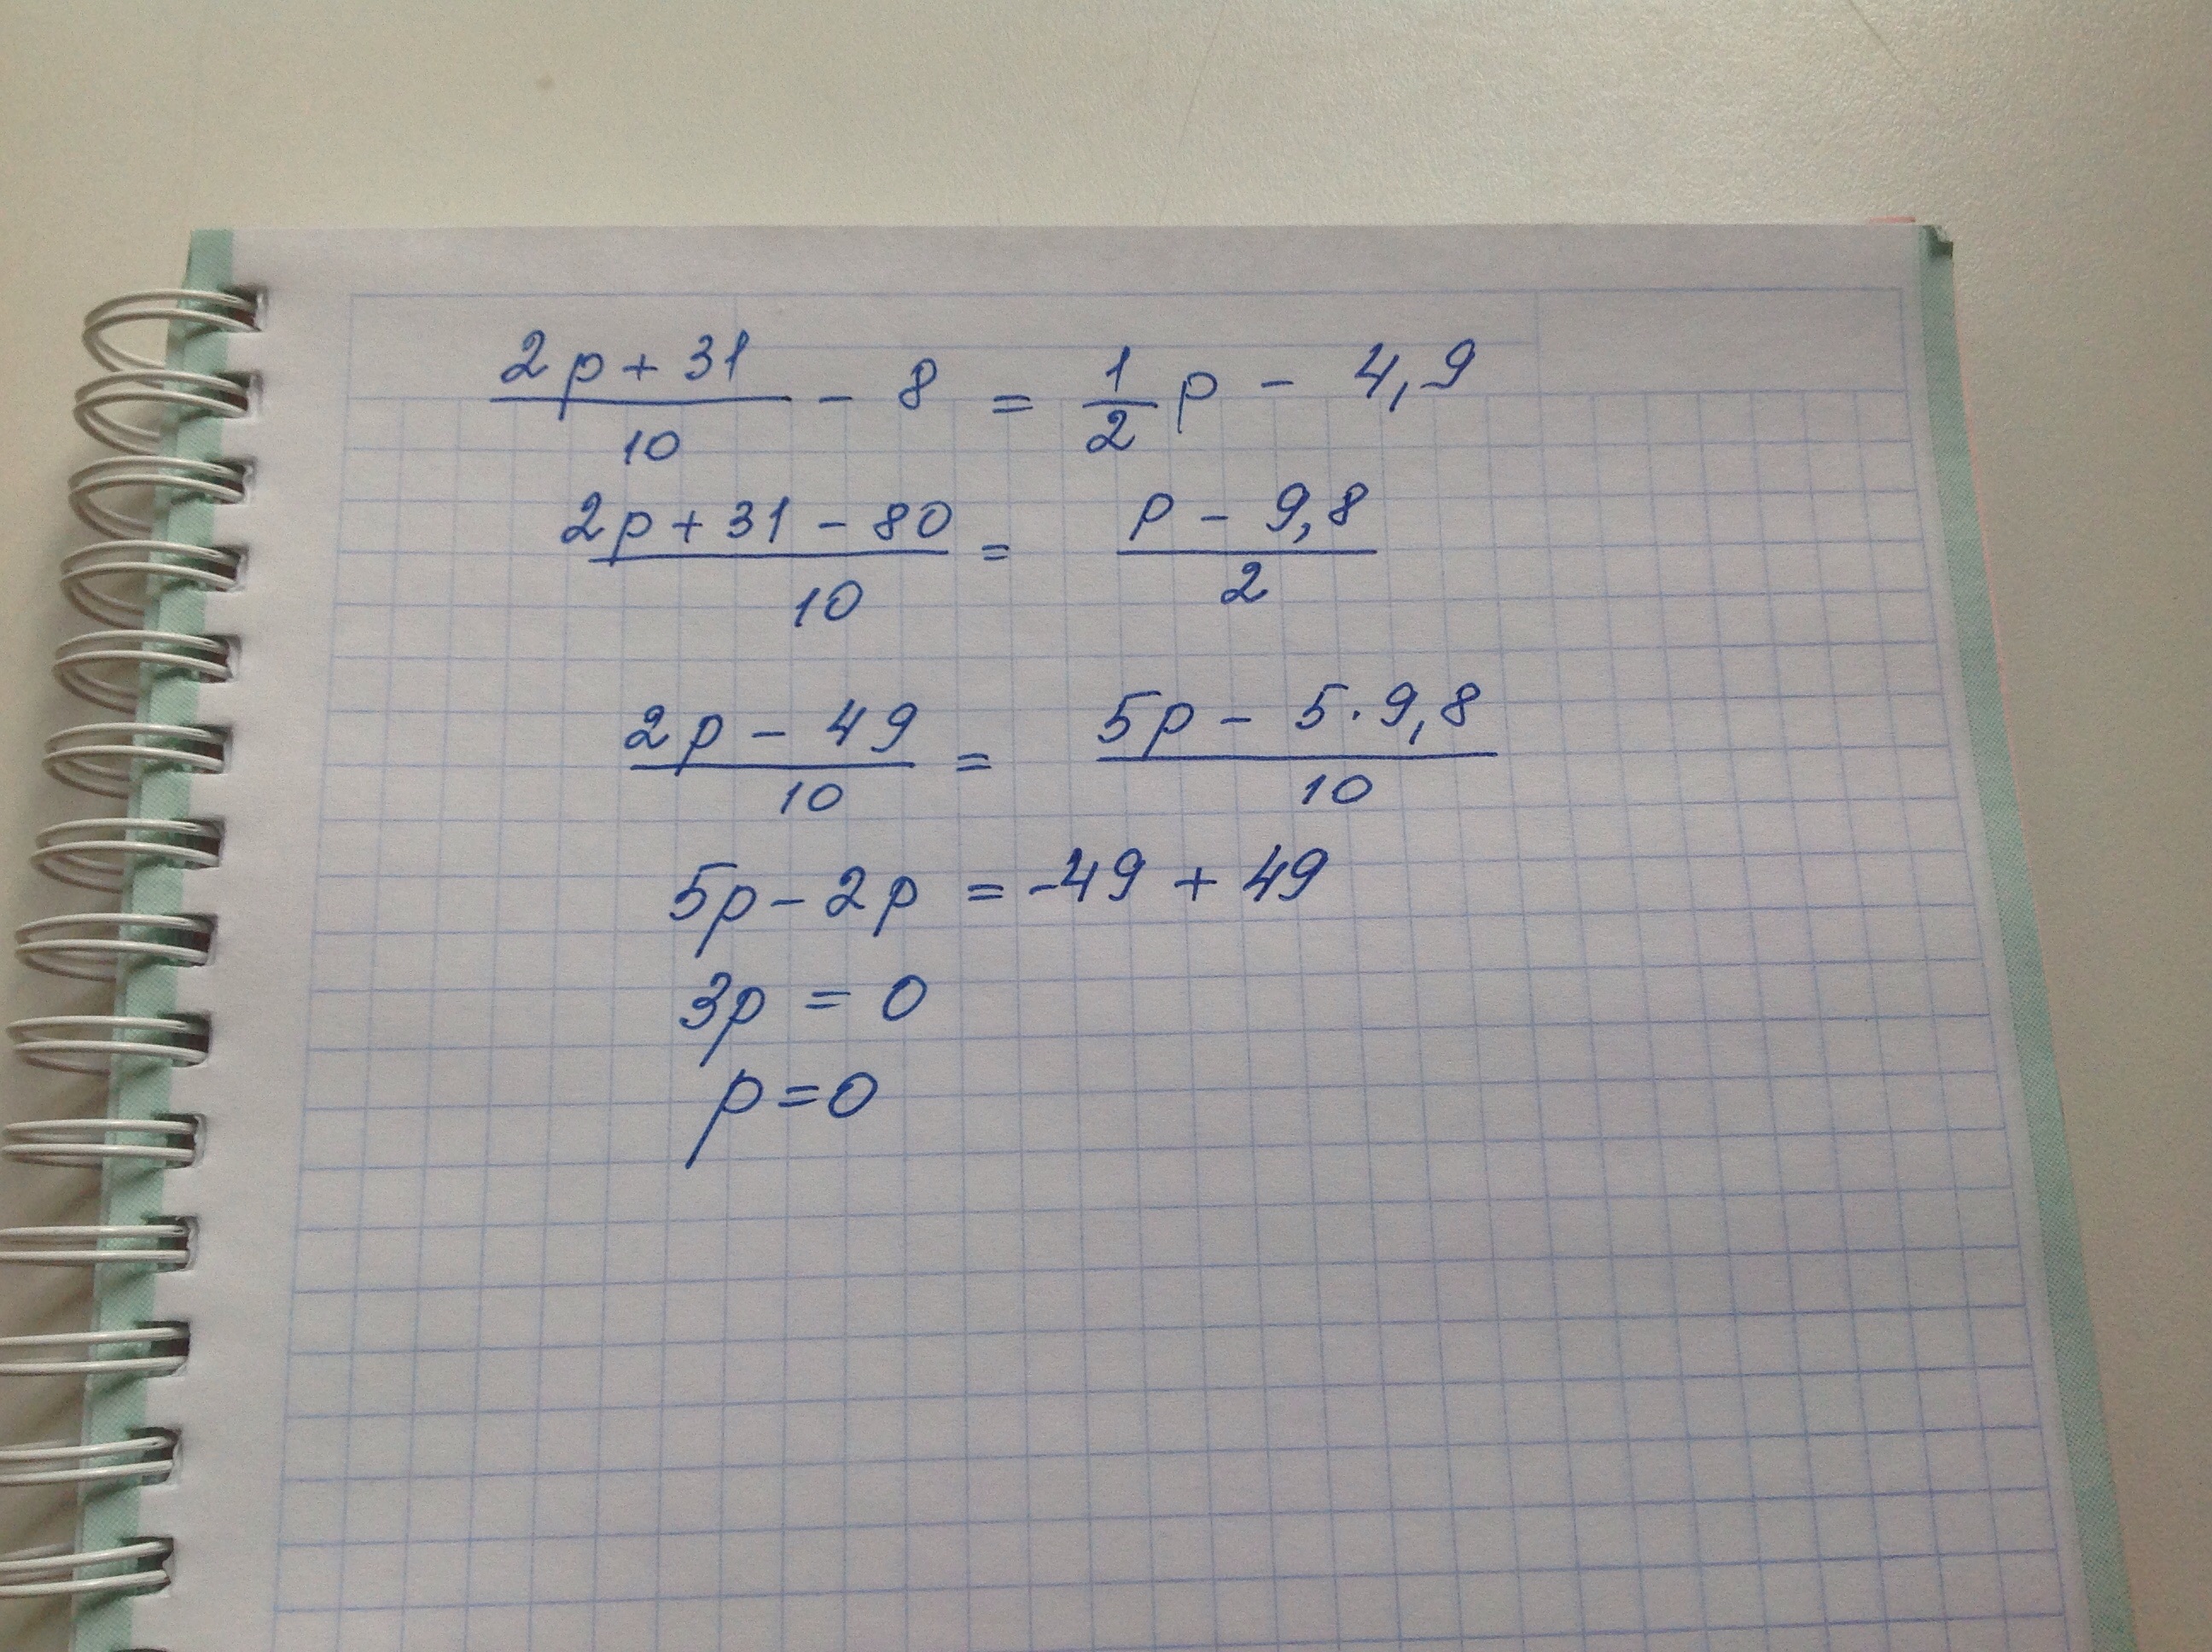 (2p + 31)/10 - 8 = 1/2 p - 4,9
(2p + 31 - 80)/10 = (p - 9,8)/2
(2p - 49)/10 = (5p - 5·9,8)/10
5p - 2p = -49 + 49
3p = 0
p = 0